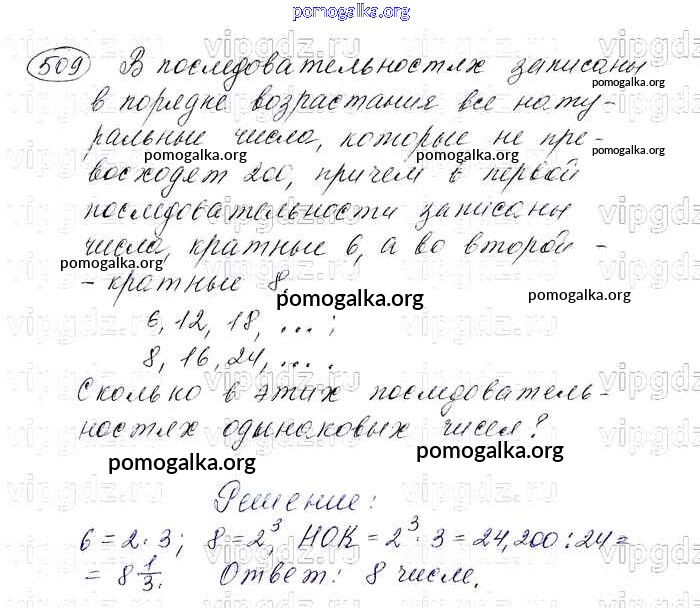 pomogalka.org
509 В последовательностях записаны
в порядке возрастания все нату-
ральные числа, которые не пре-
pomogalka.org
pomogalka.org
восходят 200, причем в первой
pomogalka.org
последовательности записаны
числа, кратные 6, а во второй -
pomogalka.org
- кратные 8.
pomogalka.org
pomogalka.org
6, 12, 18, ... ;
8, 16, 24, ... .
Сколько в этих последователь-
ностях одинаковых чисел?
pomogalka.org
pomogalka.org
Решение:
6 = 2 · 3; 8 = 2³, НОК = 2³ · 3 = 24, 200 : 24 =
= 8 1/3. Ответ: 8 чисел.
vipgdz.ru